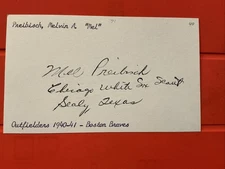 Preibisch, Melvin A. "Mel"
Mel Preibisch
Chicago White Sox Scout
Sealy Texas
Outfielders 1940-41 - Boston Braves